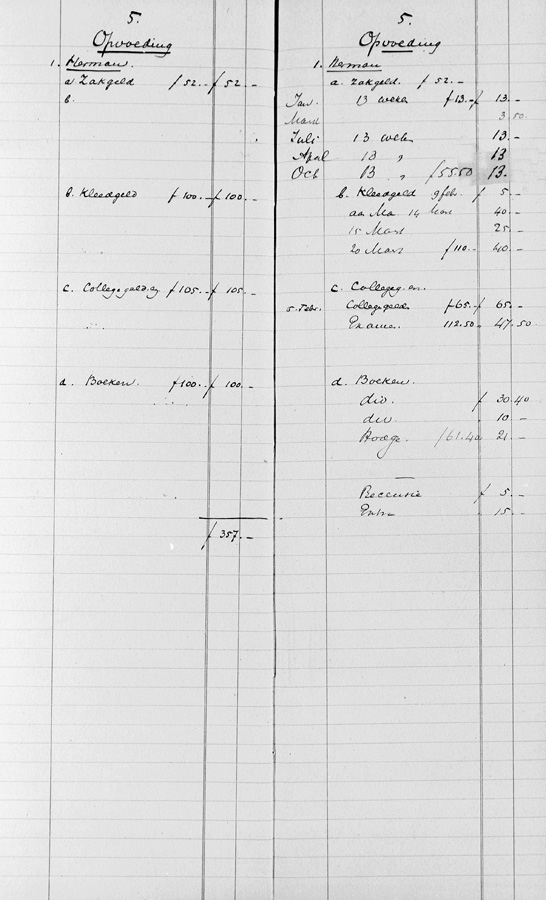 5.
Opvoeding
1. Herman.
a Zakgeld f 52.- f 52.-
b.
b. Kleedgeld f 100.- f 100.-
c. Collegegelden f 105.- f 105.-
d. Boeken. f 100.- f 100.-
f 357.-
5.
Opvoeding
1. Herman
a. Zakgeld. f 52.-
Jan. 13 weke f 13.- f 13.-
Maart 3.50
Juli 13 weke 13.-
April 13 " 13
Oct 13 " f 55.50 13.-
b. Kleedgeld 9 feb. f 5.-
aan Ma 14 Mart 40.-
15 Mart 25.-
20 Mart f 110.- 40.-
c. Collegeg. en.
5. Febr. Collegegeld f 65.- f 65.-
Examen 112.50 47.50
d. Boeken.
div. f 30.40
div 10.-
f 61.40 21.-
f 5.-
15.-